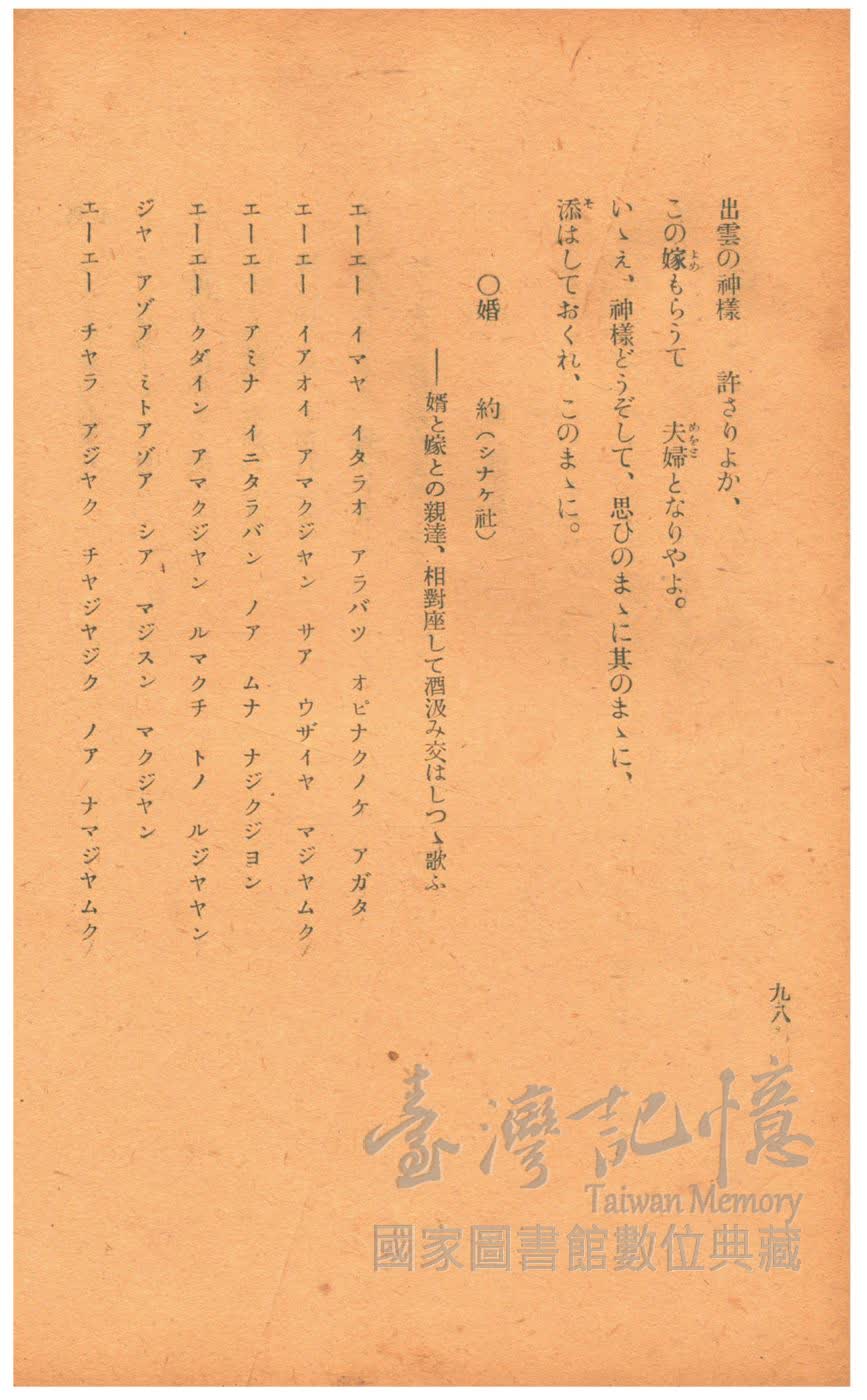 出雲の神樣　許さりよか、
この嫁もらうて　夫婦となりやよ。
いゝえ、神樣どうぞして、思ひのまゝに其のまゝに、
添はしておくれ、このまゝに。
〇婚　約（シナケ社）
──婿と嫁との親達、相對座して酒汲み交はしつゝ歌ふ
エーエー　イマヤ　イタラオ　アラバツ　オピナクノケ　アガタ
エーエー　イアオイ　アマクジヤン　サア　ウザイヤ　マジヤムク
エーエー　アミナ　イニタラバン　ノア　ムナ　ナジクジヨン
エーエー　クダイン　アマクジヤン　ルマクチ　トノ　ルジヤヤン
ジヤ　アゾア　ミトアゾア　シア　マジスン　マクジヤン
エーエー　チヤラ　アジヤク　チヤジヤジク　ノア　ナマジヤムク
九八
臺灣記憶
Taiwan Memory
國家圖書館數位典藏